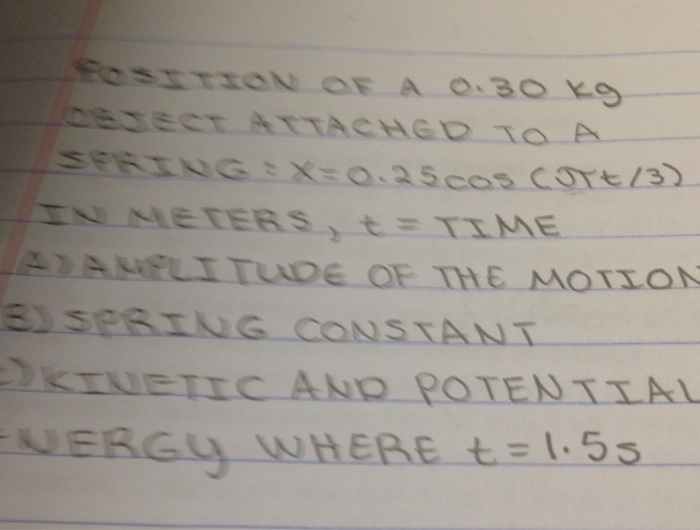 POSITION OF A 0.30 kg
OBJECT ATTACHED TO A
SPRING: X=0.25cos(πt/3)
IN METERS, t = TIME
A) AMPLITUDE OF THE MOTION
B) SPRING CONSTANT
C) KINETIC AND POTENTIAL
ENERGY WHERE t=1.5s